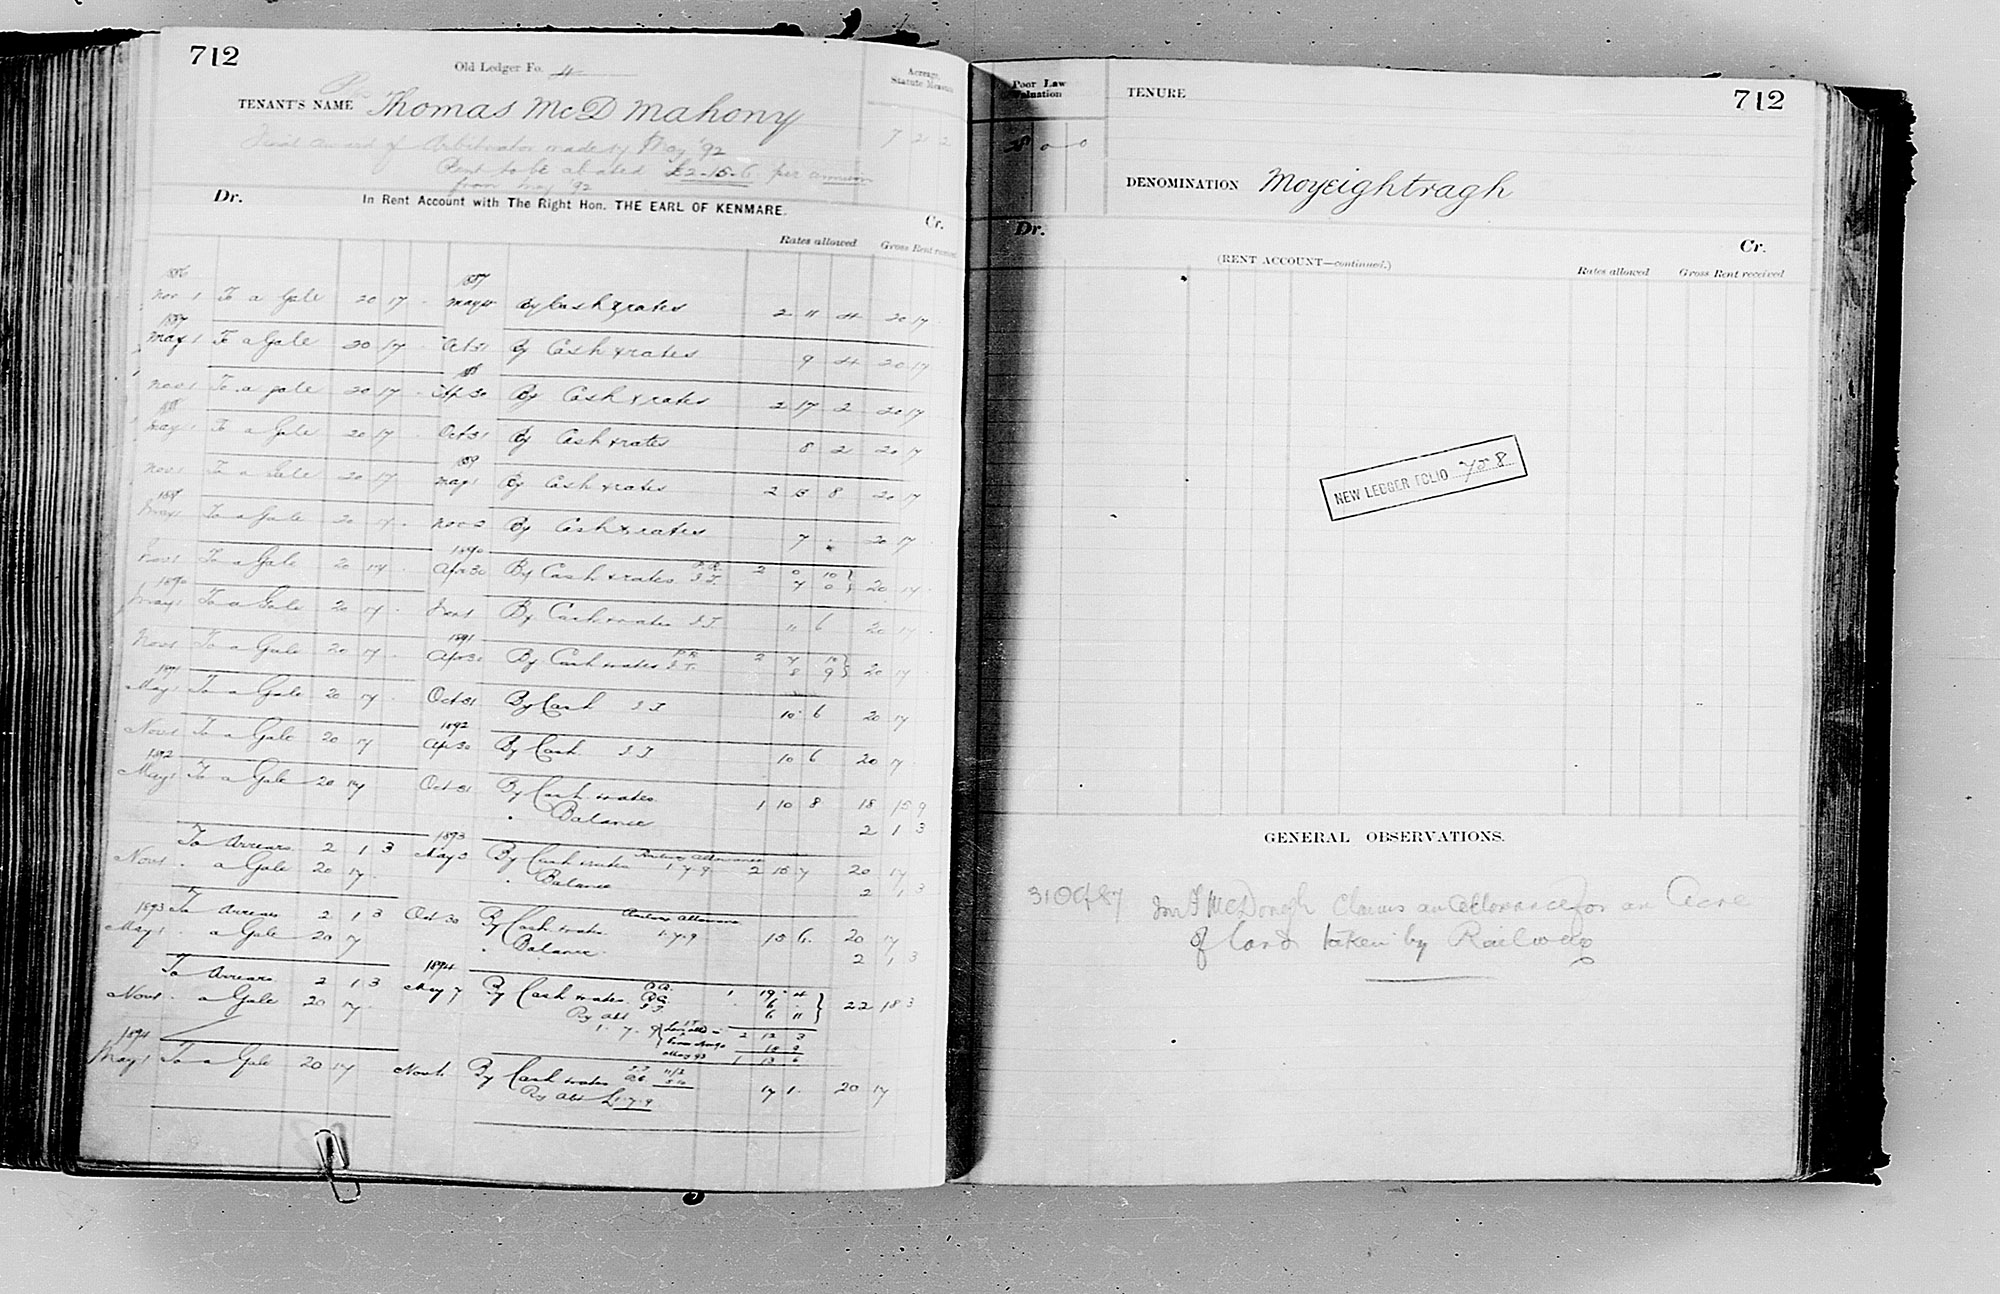 712
Old Ledger Fo. 4
Acreage,
Statute Measure
TENANT'S NAME Thomas McD Mahony
7 21 2
Final award of Arbitrator made by May '92
Rent to be abated £2-15-6 per annum
from May '92
Dr. In Rent Account with The Right Hon. THE EARL OF KENMARE. Cr.
Rates allowed Gross Rent received
1886 1887
Nov 1 To a Gale 20 17 - May By Cash & rates 2 11 4 20 17
1887
May 1 To a Gale 20 17 - Oct 31 By Cash & rates 9 4 20 17
1888
Nov 1 To a gale 20 17 - Ap 30 By Cash & rates 2 17 2 20 17
1888
May 1 To a Gale 20 17 - Oct 31 By Cash & rates 8 2 20 17
1889
Nov 1 To a Gale 20 17 May 1 By Cash & rates 2 15 8 20 17
1889
May 1 To a Gale 20 17 - Nov 2 By Cash & rates 7 - 20 17
1890
Nov 1 To a Gale 20 17 - Apr 30 By Cash & rates P.R. 2 0 10
I.T. 7 0 20 17 -
1890
May 1 To a Gale 20 17 - Nov 1 By Cash & rates I.T. 11 6 20 17 -
1891
Nov 1 To a Gale 20 17 - Apr 30 By Cash & rates P.R. 2 7 10
I.T. 8 9 20 17 -
1891
May 1 To a Gale 20 17 - Oct 31 By Cash I T 10 6 20 17
1892
Nov 1 To a Gale 20 17 Ap 30 By Cash I T 10 6 20 17
1892
May 1 To a Gale 20 17 Oct 31 By Cash & rates 1 10 8 18 15 9
" Balance 2 1 3
1893
To Arrears 2 1 3 May 3 By Cash & rates Railway allowance 1.7.9 2 15 7 20 17
Nov 1 " a Gale 20 17 - " Balance 2 1 3
1893 To Arrears 2 1 3 Oct 30 By Cash & rates Railway allowance 1.7.9 15 6 20 17
May 1 " a Gale 20 17 " Balance 2 1 3
1894
To Arrears 2 1 3 May 7 By Cash & rates P.R. 1 19 4
Nov 1 " a Gale 20 17 - 6 - 22 18 3
Ry abt I.T. 6 11
1.7.9 2 12 3
18 9
May 93 1 13 6
1894
May 1 To a Gale 20 17 Nov 1 By Cash & rates 17 1 - 20 17
Ry abt £1.7.9
Poor Law
Valuation
8 0 0
TENURE
712
DENOMINATION Moyeightragh
Dr. Cr.
(RENT ACCOUNT—continued.)
Rates allowed Gross Rent received
NEW LEDGER FOLIO 758
GENERAL OBSERVATIONS.
31 Oct 87 McDonogh Claims an allowance for an Acre
of land taken by Railway